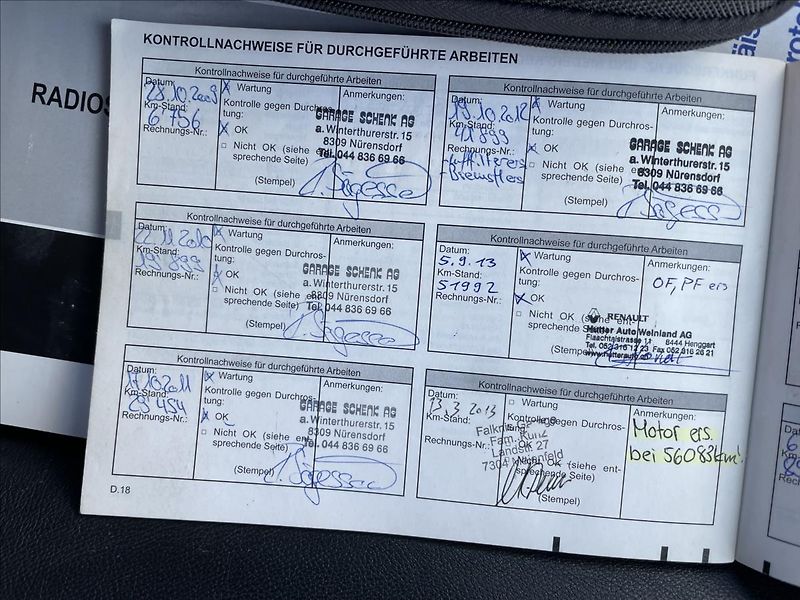 RADIOS
KONTROLLNACHWEISE FÜR DURCHGEFÜHRTE ARBEITEN
Kontrollnachweise für durchgeführte Arbeiten
Datum:
28.10.2009
Km-Stand:
6 756
Rechnungs-Nr.:
Wartung
Kontrolle gegen Durchros-
tung:
OK
Nicht OK (siehe ent-
sprechende Seite)
(Stempel)
Anmerkungen:
GARAGE SCHENK AG
a. Winterthurerstr. 15
8309 Nürensdorf
Tel. 044 836 69 66
Kontrollnachweise für durchgeführte Arbeiten
Datum:
22.11.2010
Km-Stand:
Rechnungs-Nr.:
Wartung
Kontrolle gegen Durchros-
tung:
OK
Nicht OK (siehe ent-
sprechende Seite)
(Stempel)
Anmerkungen:
GARAGE SCHENK AG
a. Winterthurerstr. 15
8309 Nürensdorf
Tel. 044 836 69 66
Kontrollnachweise für durchgeführte Arbeiten
Datum:
17.10.2011
Km-Stand:
29 454
Rechnungs-Nr.:
Wartung
Kontrolle gegen Durchros-
tung:
OK
Nicht OK (siehe ent-
sprechende Seite)
(Stempel)
Anmerkungen:
GARAGE SCHENK AG
a. Winterthurerstr. 15
8309 Nürensdorf
Tel. 044 836 69 66
D.18
Kontrollnachweise für durchgeführte Arbeiten
Datum:
19.10.2012
Km-Stand:
41 899
Rechnungs-Nr.:
-Luftfilter ers
-Bremsfl ers
Wartung
Kontrolle gegen Durchros-
tung:
OK
Nicht OK (siehe ent-
sprechende Seite)
(Stempel)
Anmerkungen:
GARAGE SCHENK AG
a. Winterthurerstr. 15
8309 Nürensdorf
Tel. 044 836 69 66
Kontrollnachweise für durchgeführte Arbeiten
Datum:
5.9.13
Km-Stand:
51992
Rechnungs-Nr.:
Wartung
Kontrolle gegen Durchros-
tung:
OK
Nicht OK (siehe ent-
sprechende Seite)
(Stempel)
Anmerkungen:
OF, PF ers
RENAULT
Hutter Auto Weinland AG
Flaachtalstrasse 8444 Henggart
Kontrollnachweise für durchgeführte Arbeiten
Datum:
Km-Stand:
Rechnungs-Nr.:
Wartung
Kontrolle gegen Durchros-
tung:
OK
Nicht OK (siehe ent-
sprechende Seite)
(Stempel)
Fam. Kunz
Landstr. 27
Anmerkungen:
Motor ers.
bei 56083km!